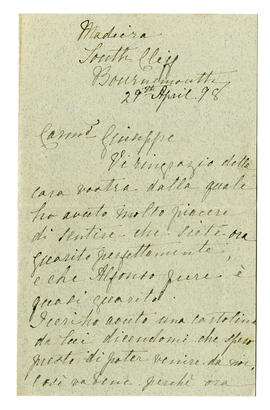 Madeira
South Cliff
Bournemouth
29th April 98
Carmo Giuseppe
Vi ringrazio della
cara vostra dalla quale
ho avuto molto piacere
di sentire che siete ora
guarito perfettamente,
e che Alfonso pure è
quasi guarito.
Ieri ho avuto una cartolina
da lui dicendomi che spero
presto di poter venire da noi,
così va bene perchè ora